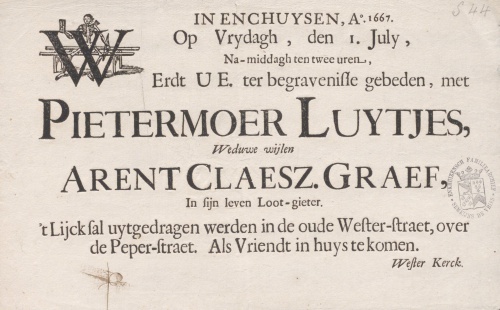 IN ENCHUYSEN, Aº. 1667.
Op Vrydagh, den 1. July,
Na-middagh ten twee uren,
WErdt U E. ter begravenisse gebeden, met
PIETERMOER LUYTJES,
Weduwe wijlen
ARENT CLAESZ. GRAEF,
In sijn leven Loot-gieter.
't Lijck sal uytgedragen werden in de oude Wester-straet, over
de Peper-straet. Als Vriendt in huys te komen.
Wester Kerck.
S 44